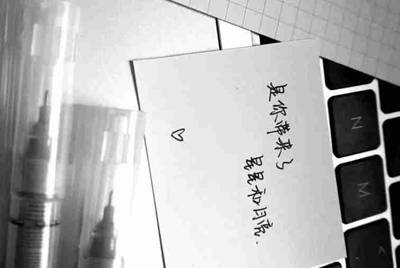 是你带来了
星星和月亮.
N
M